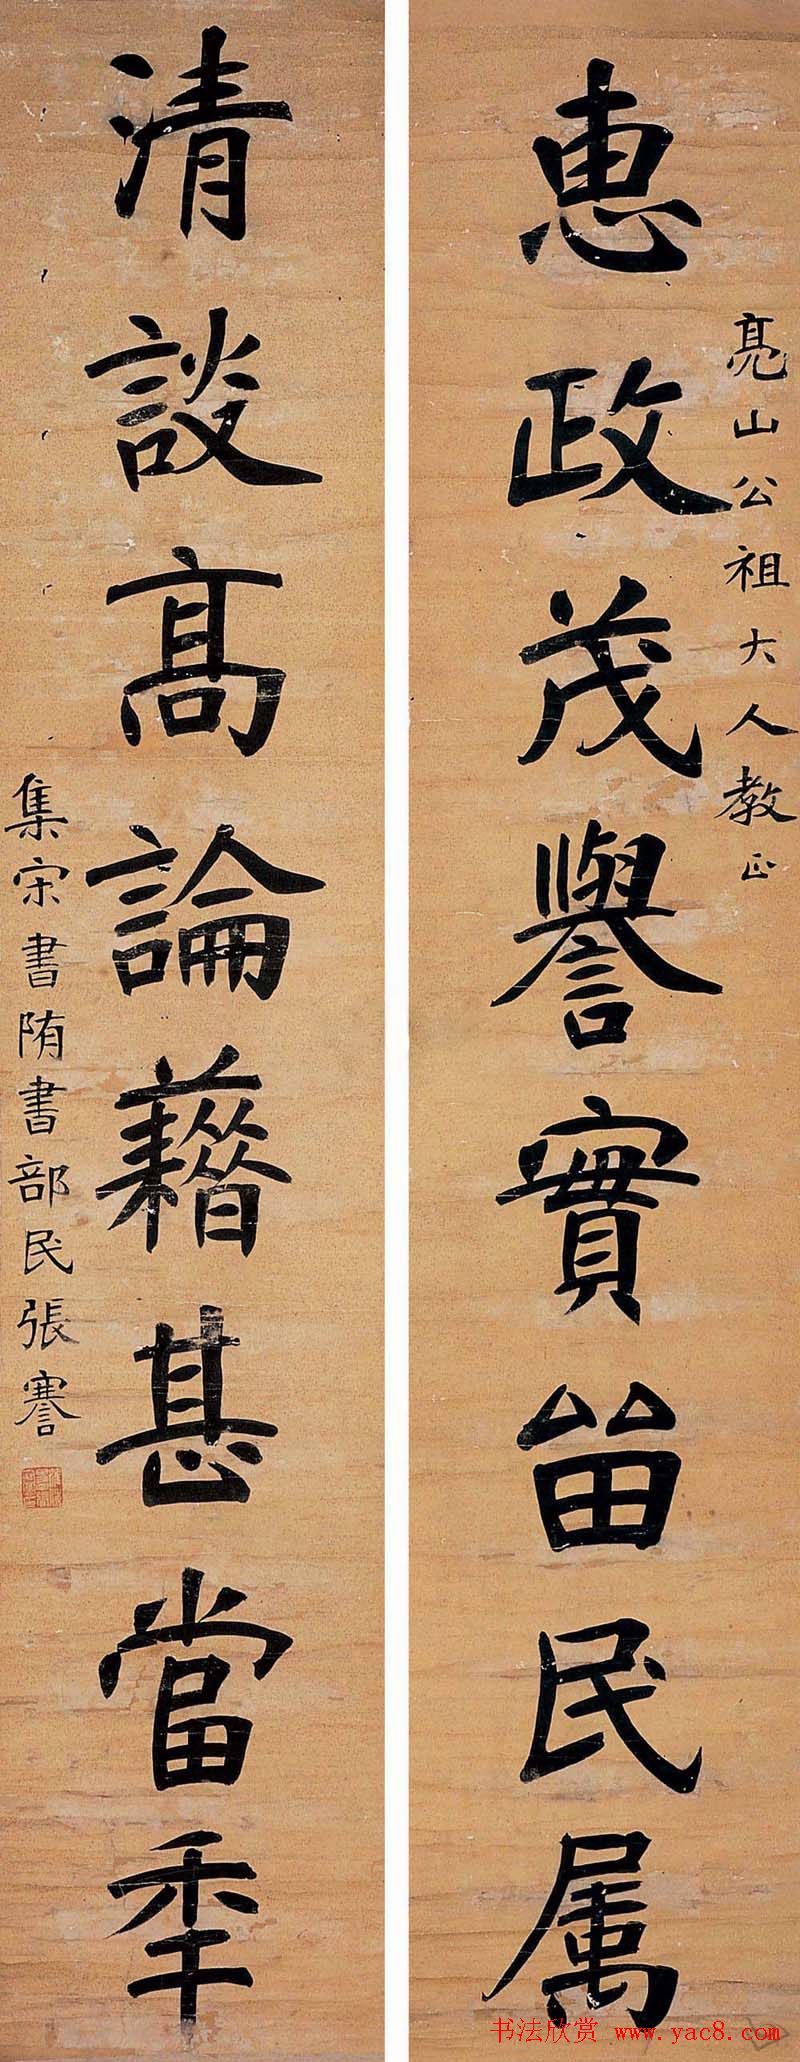 亮山公祖大人教正
惠政茂譽實留民属
清談髙論藉甚當秊
集宋書隋書部民張謇
书法欣赏 www.yac8.com